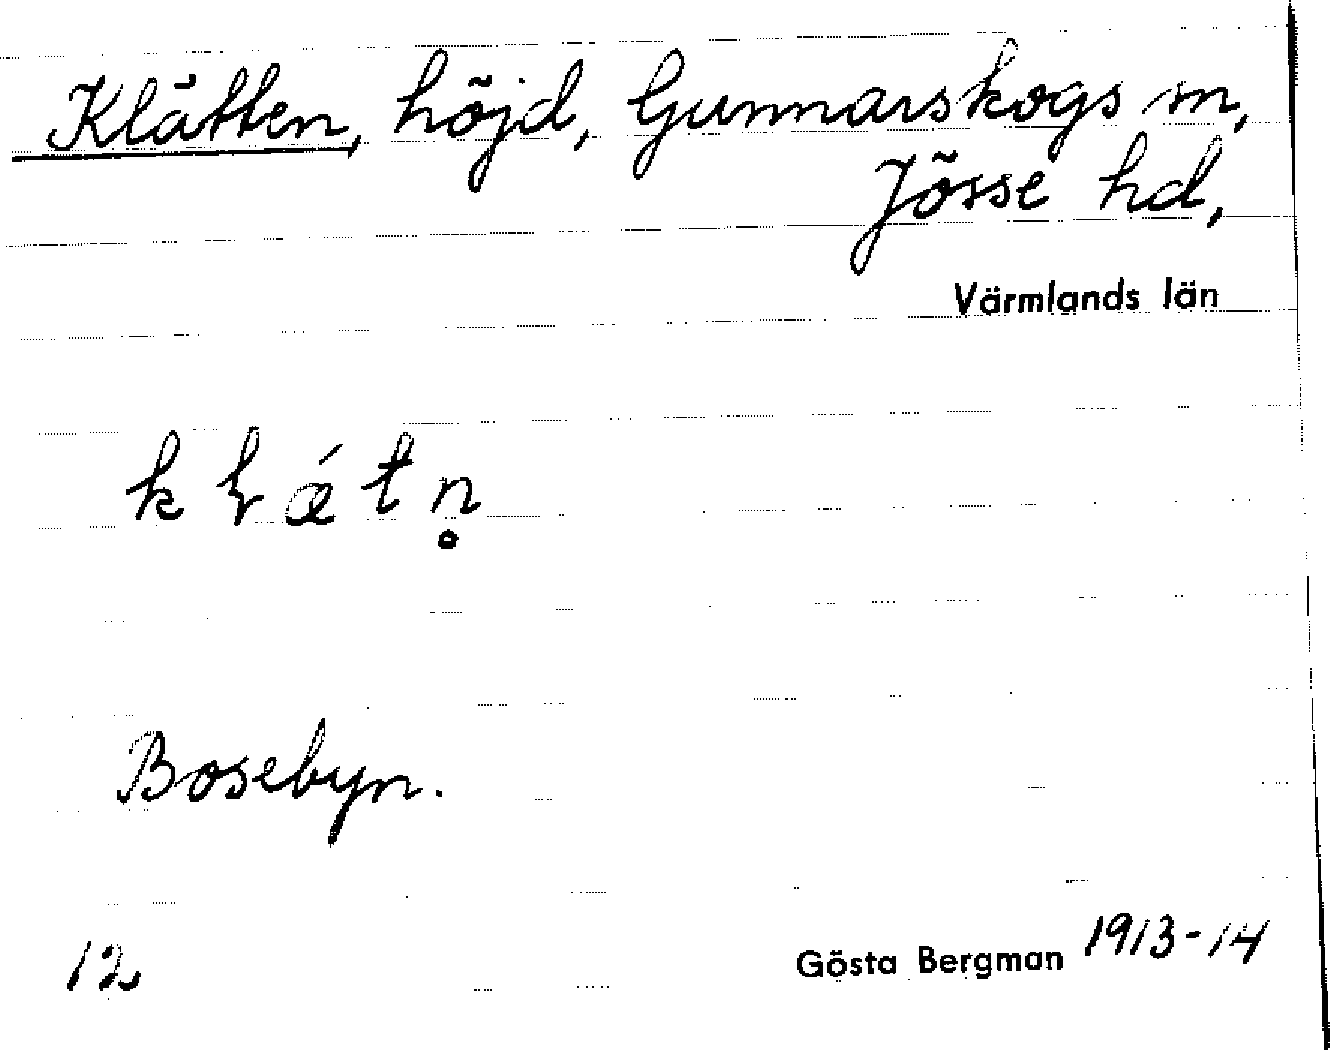 Klätten, höjd, Gunnarskogs sn,
Jösse hd,
Värmlands län
k ɽ ǽ t n̥
Bosebyn.
12
Gösta Bergman 1913-14